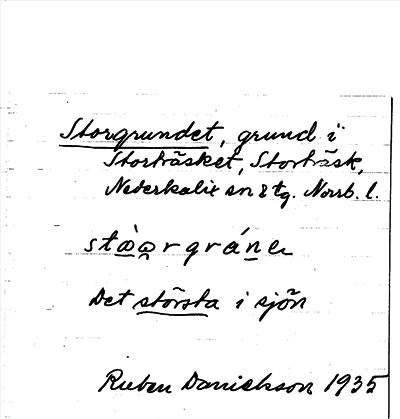 Storgrundet, grund i
Storträsket, Storträsk,
Nederkalix sn & tg. Norrb. l.
Det största i sjön
Ruben Danielsson 1935